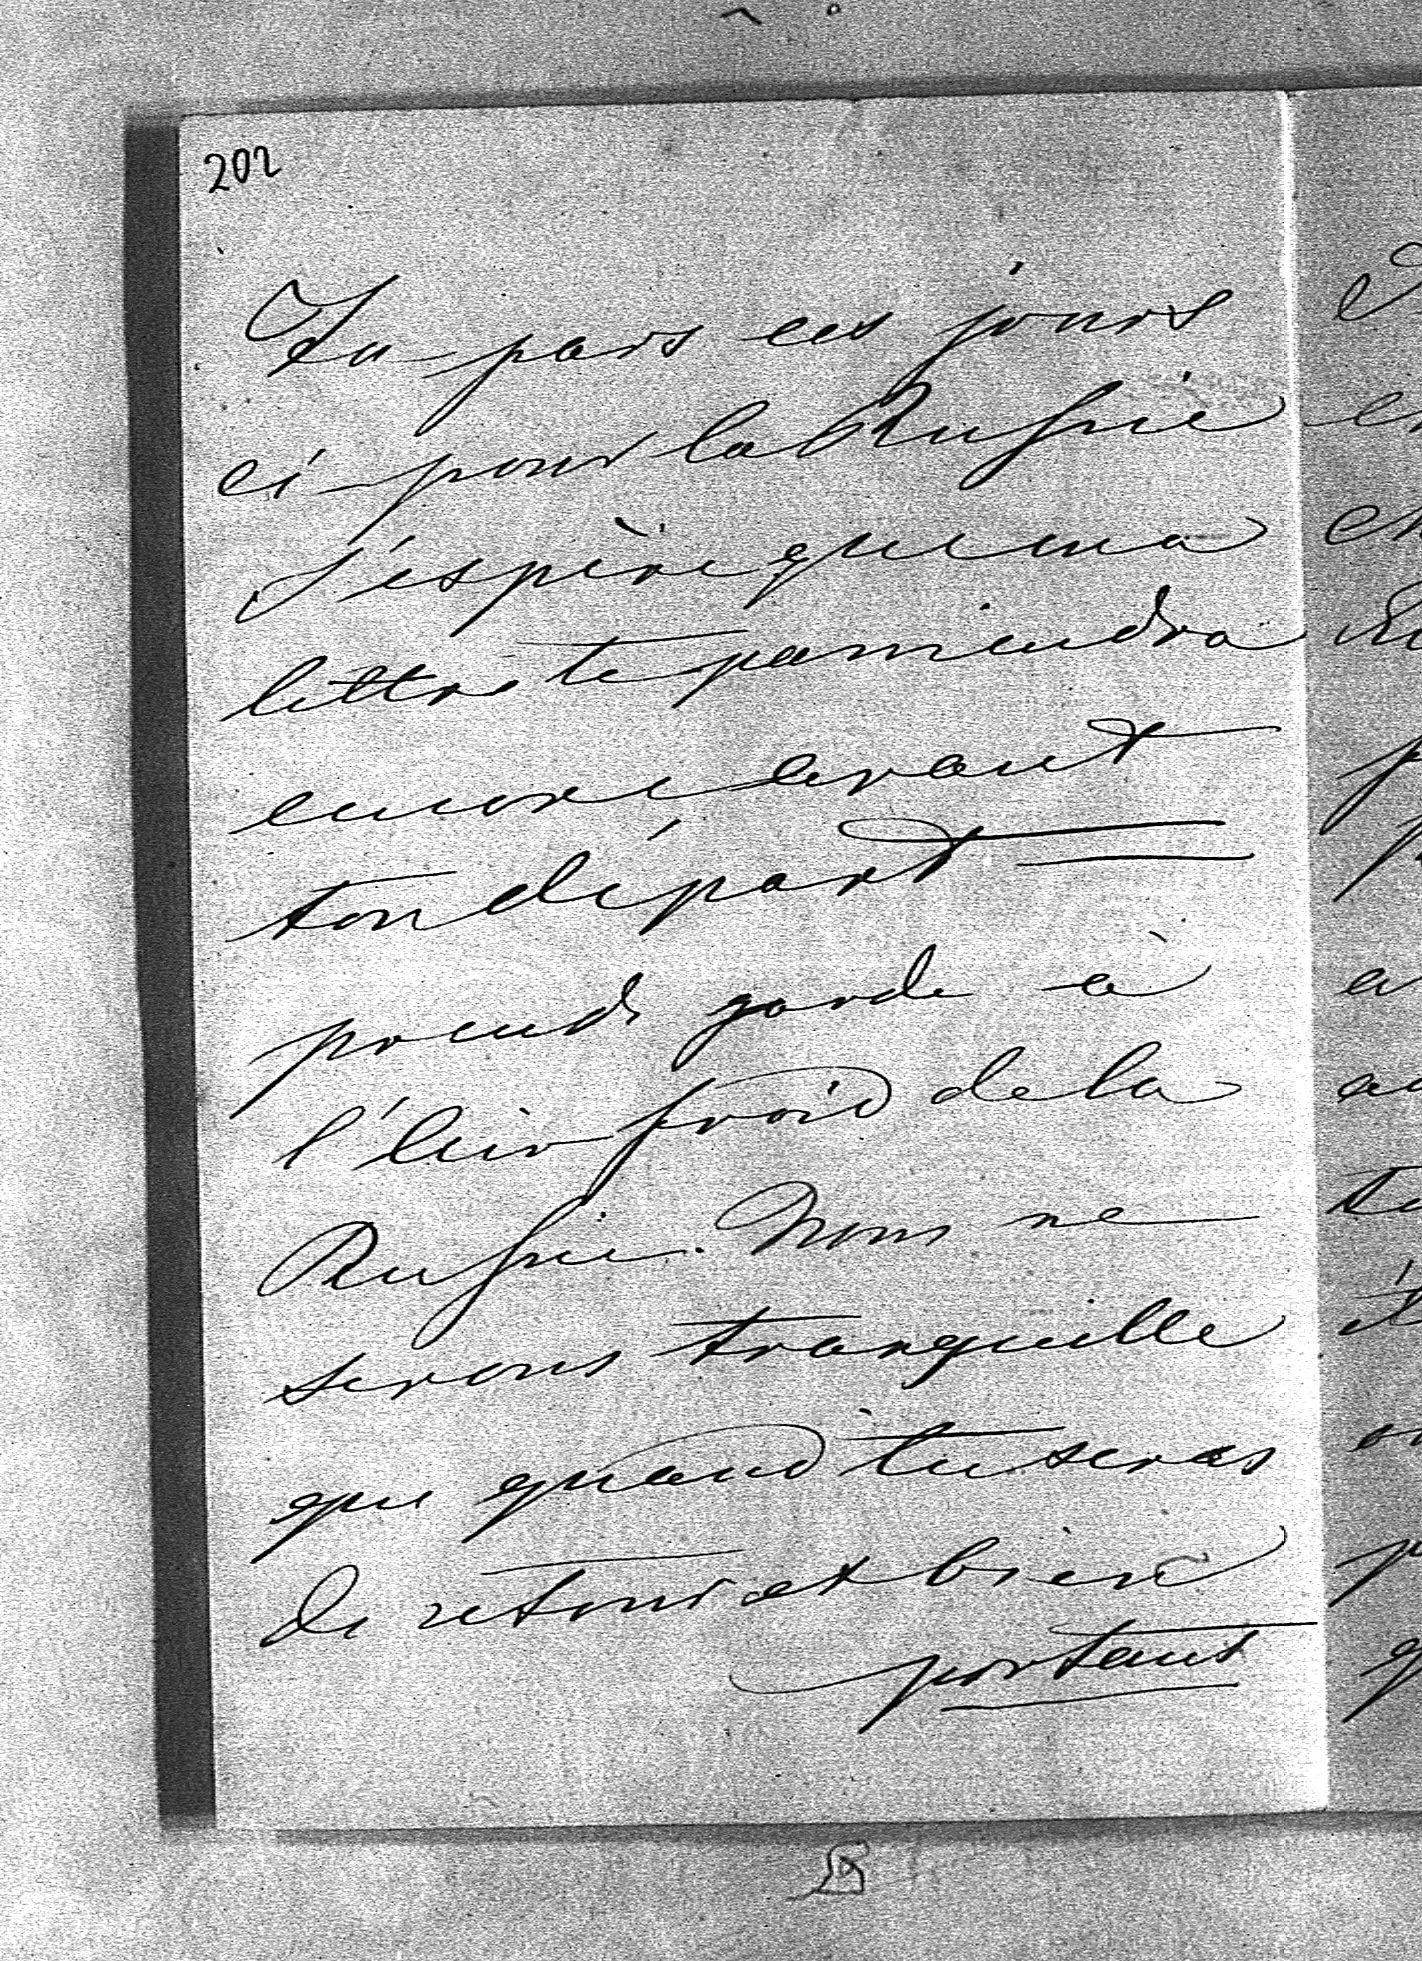 202
Tu pars ces jours
ci pour la Russie
J'éspère que ma
lettre te parviendra
encore avant
ton départ
prends garde à
l'air froid de la
Russie. Nous ne
serons tranquille
que quand tu seras
de retour et bien
portant